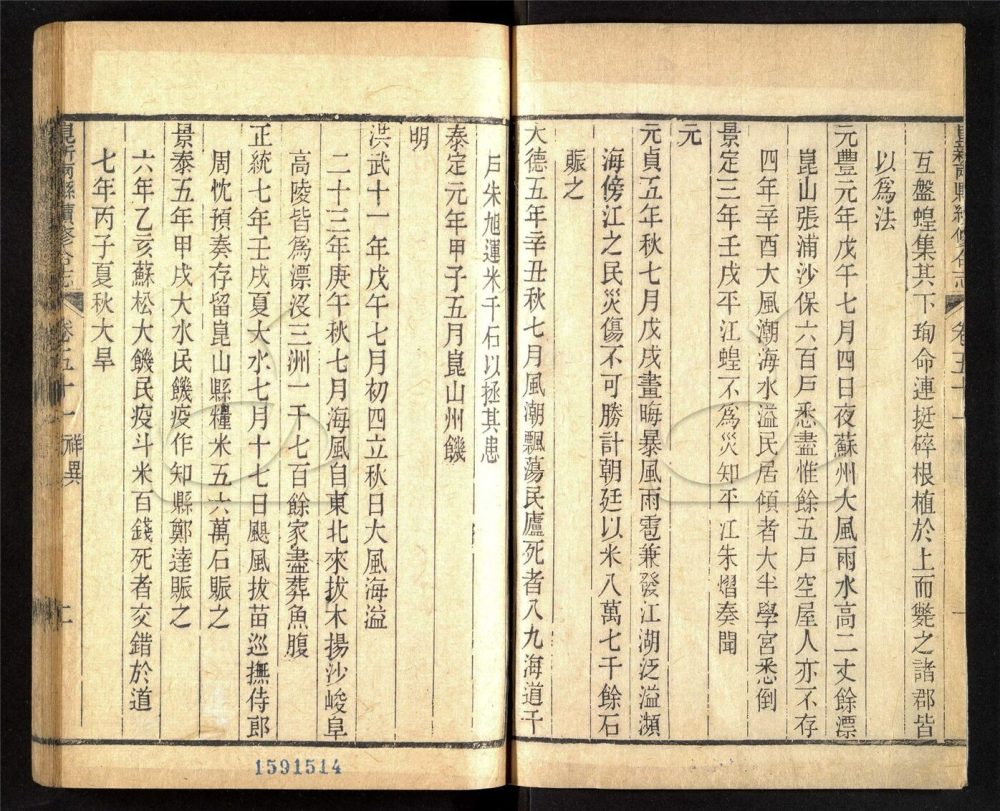 互盤蝗集其下珣命連挺碎根植於上而斃之諸郡皆
以爲法
元豐元年戊午七月四日夜蘇州大風雨水高二丈餘漂
崑山張浦沙保六百戶悉盡惟餘五戶空屋人亦不存
四年辛酉大風潮海水溢民居傾者大半學宮悉倒
景定三年壬戌平江蝗不爲災知平江朱熠奏聞
元
元貞五年秋七月戊戌晝晦暴風雨雹兼發江湖泛溢瀕
海傍江之民災傷不可勝計朝廷以米八萬七千餘石
賑之
大德五年辛丑秋七月風潮飄蕩民廬死者八九海道千
戶朱旭運米千石以拯其患
泰定元年甲子五月崑山州饑
明
洪武十一年戊午七月初四立秋日大風海溢
二十三年庚午秋七月海風自東北來拔木揚沙峻阜
高陵皆爲漂沒三洲一千七百餘家盡葬魚腹
正統七年壬戌夏大水七月十七日颶風拔苗巡撫侍郎
周忱預奏存留崑山縣糧米五六萬石賑之
景泰五年甲戌大水民饑疫作知縣鄭達賑之
六年乙亥蘇松大饑民疫斗米百錢死者交錯於道
七年丙子夏秋大旱
卷五十一 祥異
1591514